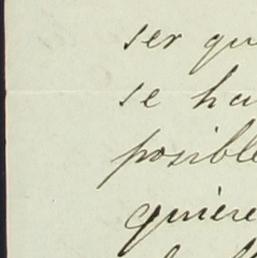 ser qu
se ha
posible
quiere